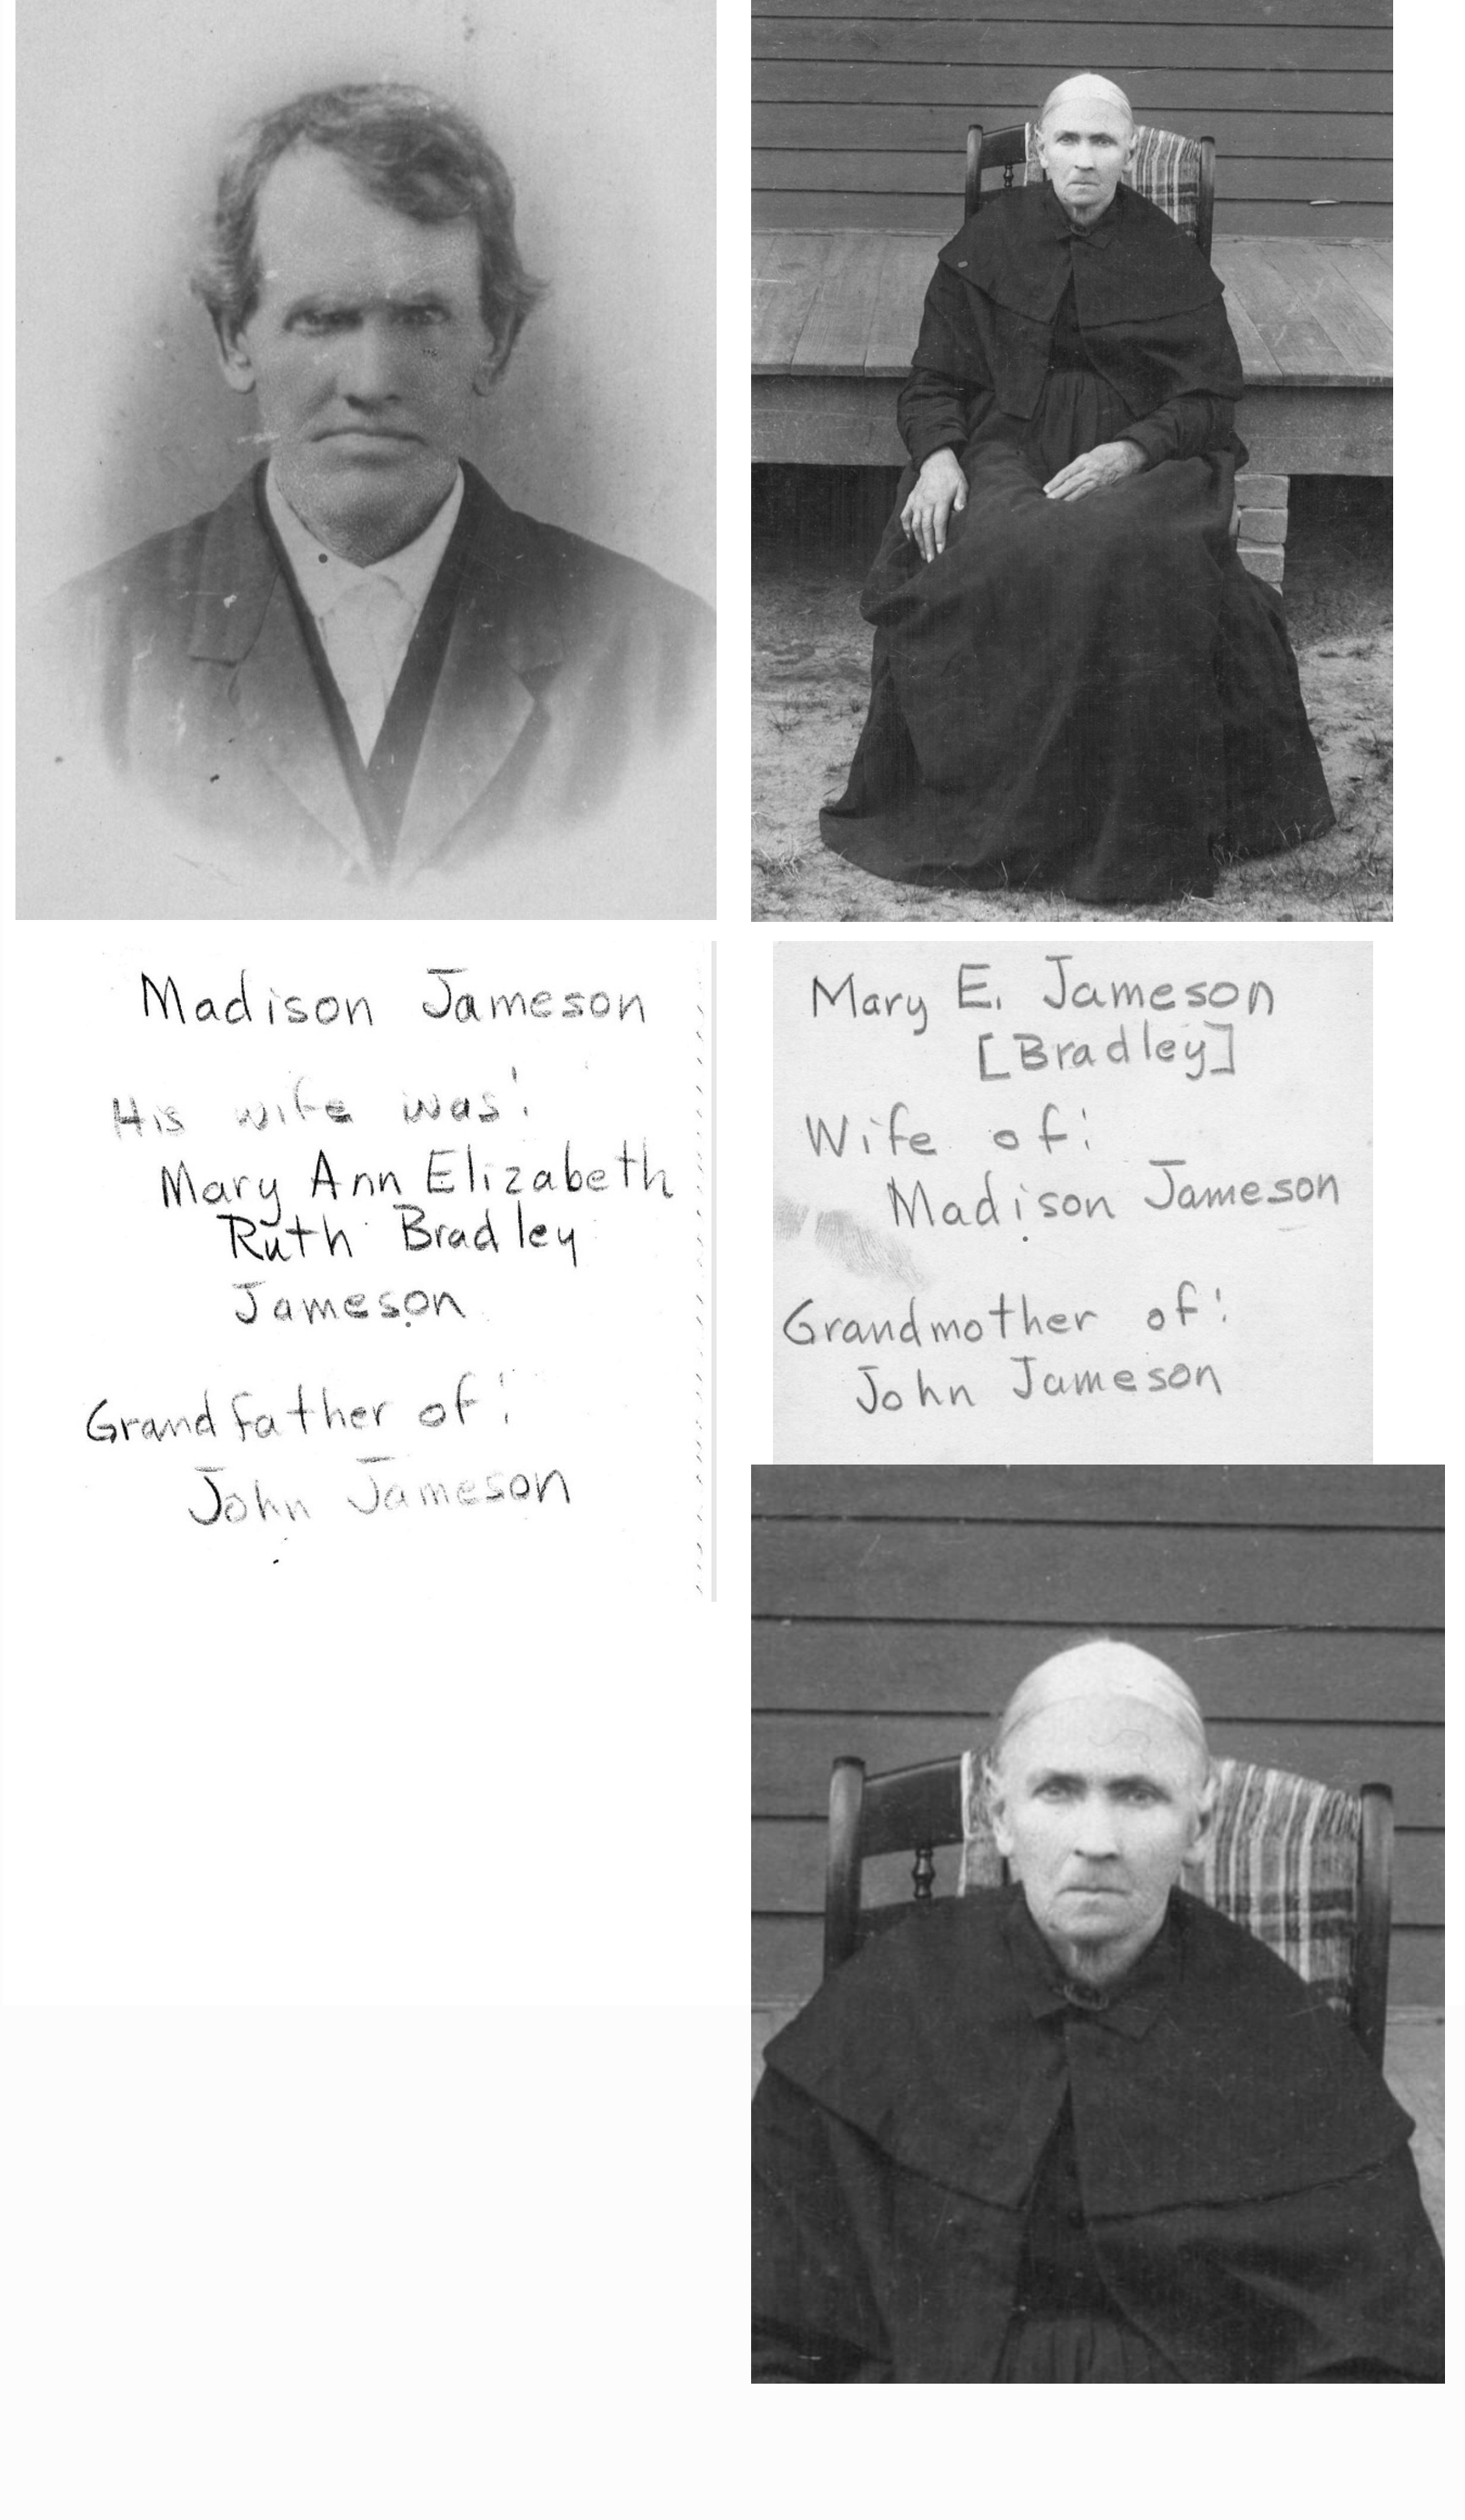 Madison Jameson
His wife was:
Mary Ann Elizabeth
Ruth Bradley
Jameson
Grandfather of:
John Jameson
Mary E. Jameson
[Bradley]
Wife of:
Madison Jameson
Grandmother of:
John Jameson